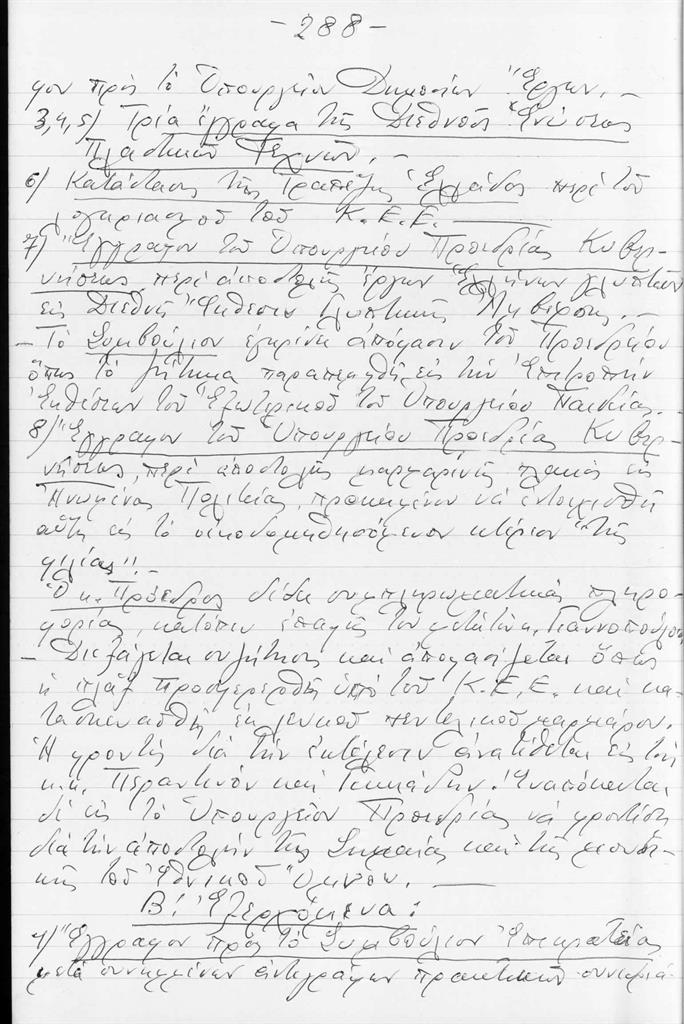 - 288 -
γον πρός τό Ὑπουργεῖον Δημοσίων Ἔργων. -
3,4,5) Τρία ἔγγραφα τῆς Διεθνοῦς Ἑνώσεως
Πλαστικῶν Τεχνῶν. -
6) Κατάστασις τῆς Τραπέζης Ἑλλάδος περί τοῦ
λογαριασμοῦ τοῦ Κ.Ε.Ε. -
7) Ἔγγραφον τοῦ Ὑπουργείου Προεδρίας Κυβερ-
νήσεως, περί ἀποστολῆς ἔργων Ἑλλήνων γλυπτῶν
εἰς Διεθνῆ Ἔκθεσιν Γλυπτικῆς Ἀμβέρσης. -
- Τό Συμβούλιον ἐγκρίνει ἀπόφασιν τοῦ Προεδρείου
ὅπως τό ζήτημα παραπεμφθῇ εἰς τήν Ἐπιτροπήν
Ἐκθέσεων τοῦ Ἐξωτερικοῦ τοῦ Ὑπουργείου Παιδείας. -
8) Ἔγγραφον τοῦ Ὑπουργείου Προεδρίας Κυβερ-
νήσεως, περί ἀποστολῆς μαρμαρίνης πλακός εἰς
Ἡνωμένας Πολιτείας, προκειμένου νά ἐντοιχισθῇ
αὕτη εἰς τό οἰκοδομηθησόμενον κτίριον "τῆς
φιλίας". -
Ὁ κ. Πρόεδρος δίδει συμπληρωματικάς πληρο-
φορίας, κατόπιν ἐπαφῆς του μετά τοῦ κ. Γιαννοπούλου
- Διεξάγεται συζήτησις καί ἀποφασίζεται ὅπως
ἡ πλάξ προσφερθῇ ὑπό τοῦ Κ.Ε.Ε. καί κα-
τασκευασθῇ ἐκ λευκοῦ πεντελικοῦ μαρμάρου.
Ἡ φροντίς διά τήν ἐκτέλεσιν ἀνατίθεται εἰς τούς
κ.κ. Περαντινόν καί Ἐναπόκειται
δέ εἰς τό Ὑπουργεῖον Προεδρίας νά φροντίσῃ
διά τήν ἀποστολήν τῆς Σημαίας καί τῆς μουσι-
κῆς τοῦ Ἐθνικοῦ Ὕμνου. -
Β! Ἐξερχόμενα:
1) Ἔγγραφον πρός τό Συμβούλιον Ἐπικρατείας
μετά συνημμένων ἀντιγράφων πρακτικῶν συνεδριά-